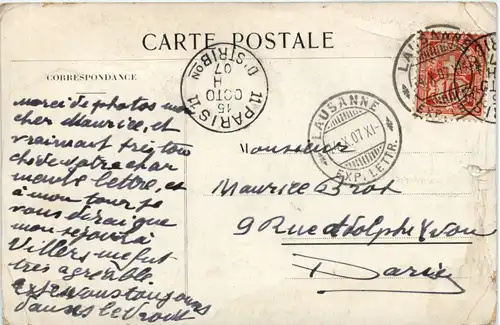 CARTE POSTALE
CORRESPONDANCE
LAUSANNE
11 PARIS 11
15
OCTO
H
07
DISTRIBON
LAUSANNE
X.07.XI
EXP. LETTR.
merci de photos mon
cher Maurice, et
vraiment très tou
chée de votre char
mante lettre, et
à mon tour je
vous dirai que
mon séjour à
Villers me fut
très agréable
toujours
M
Monsieur
Maurice Brot
9 Rue Adolphe Yvon
Paris